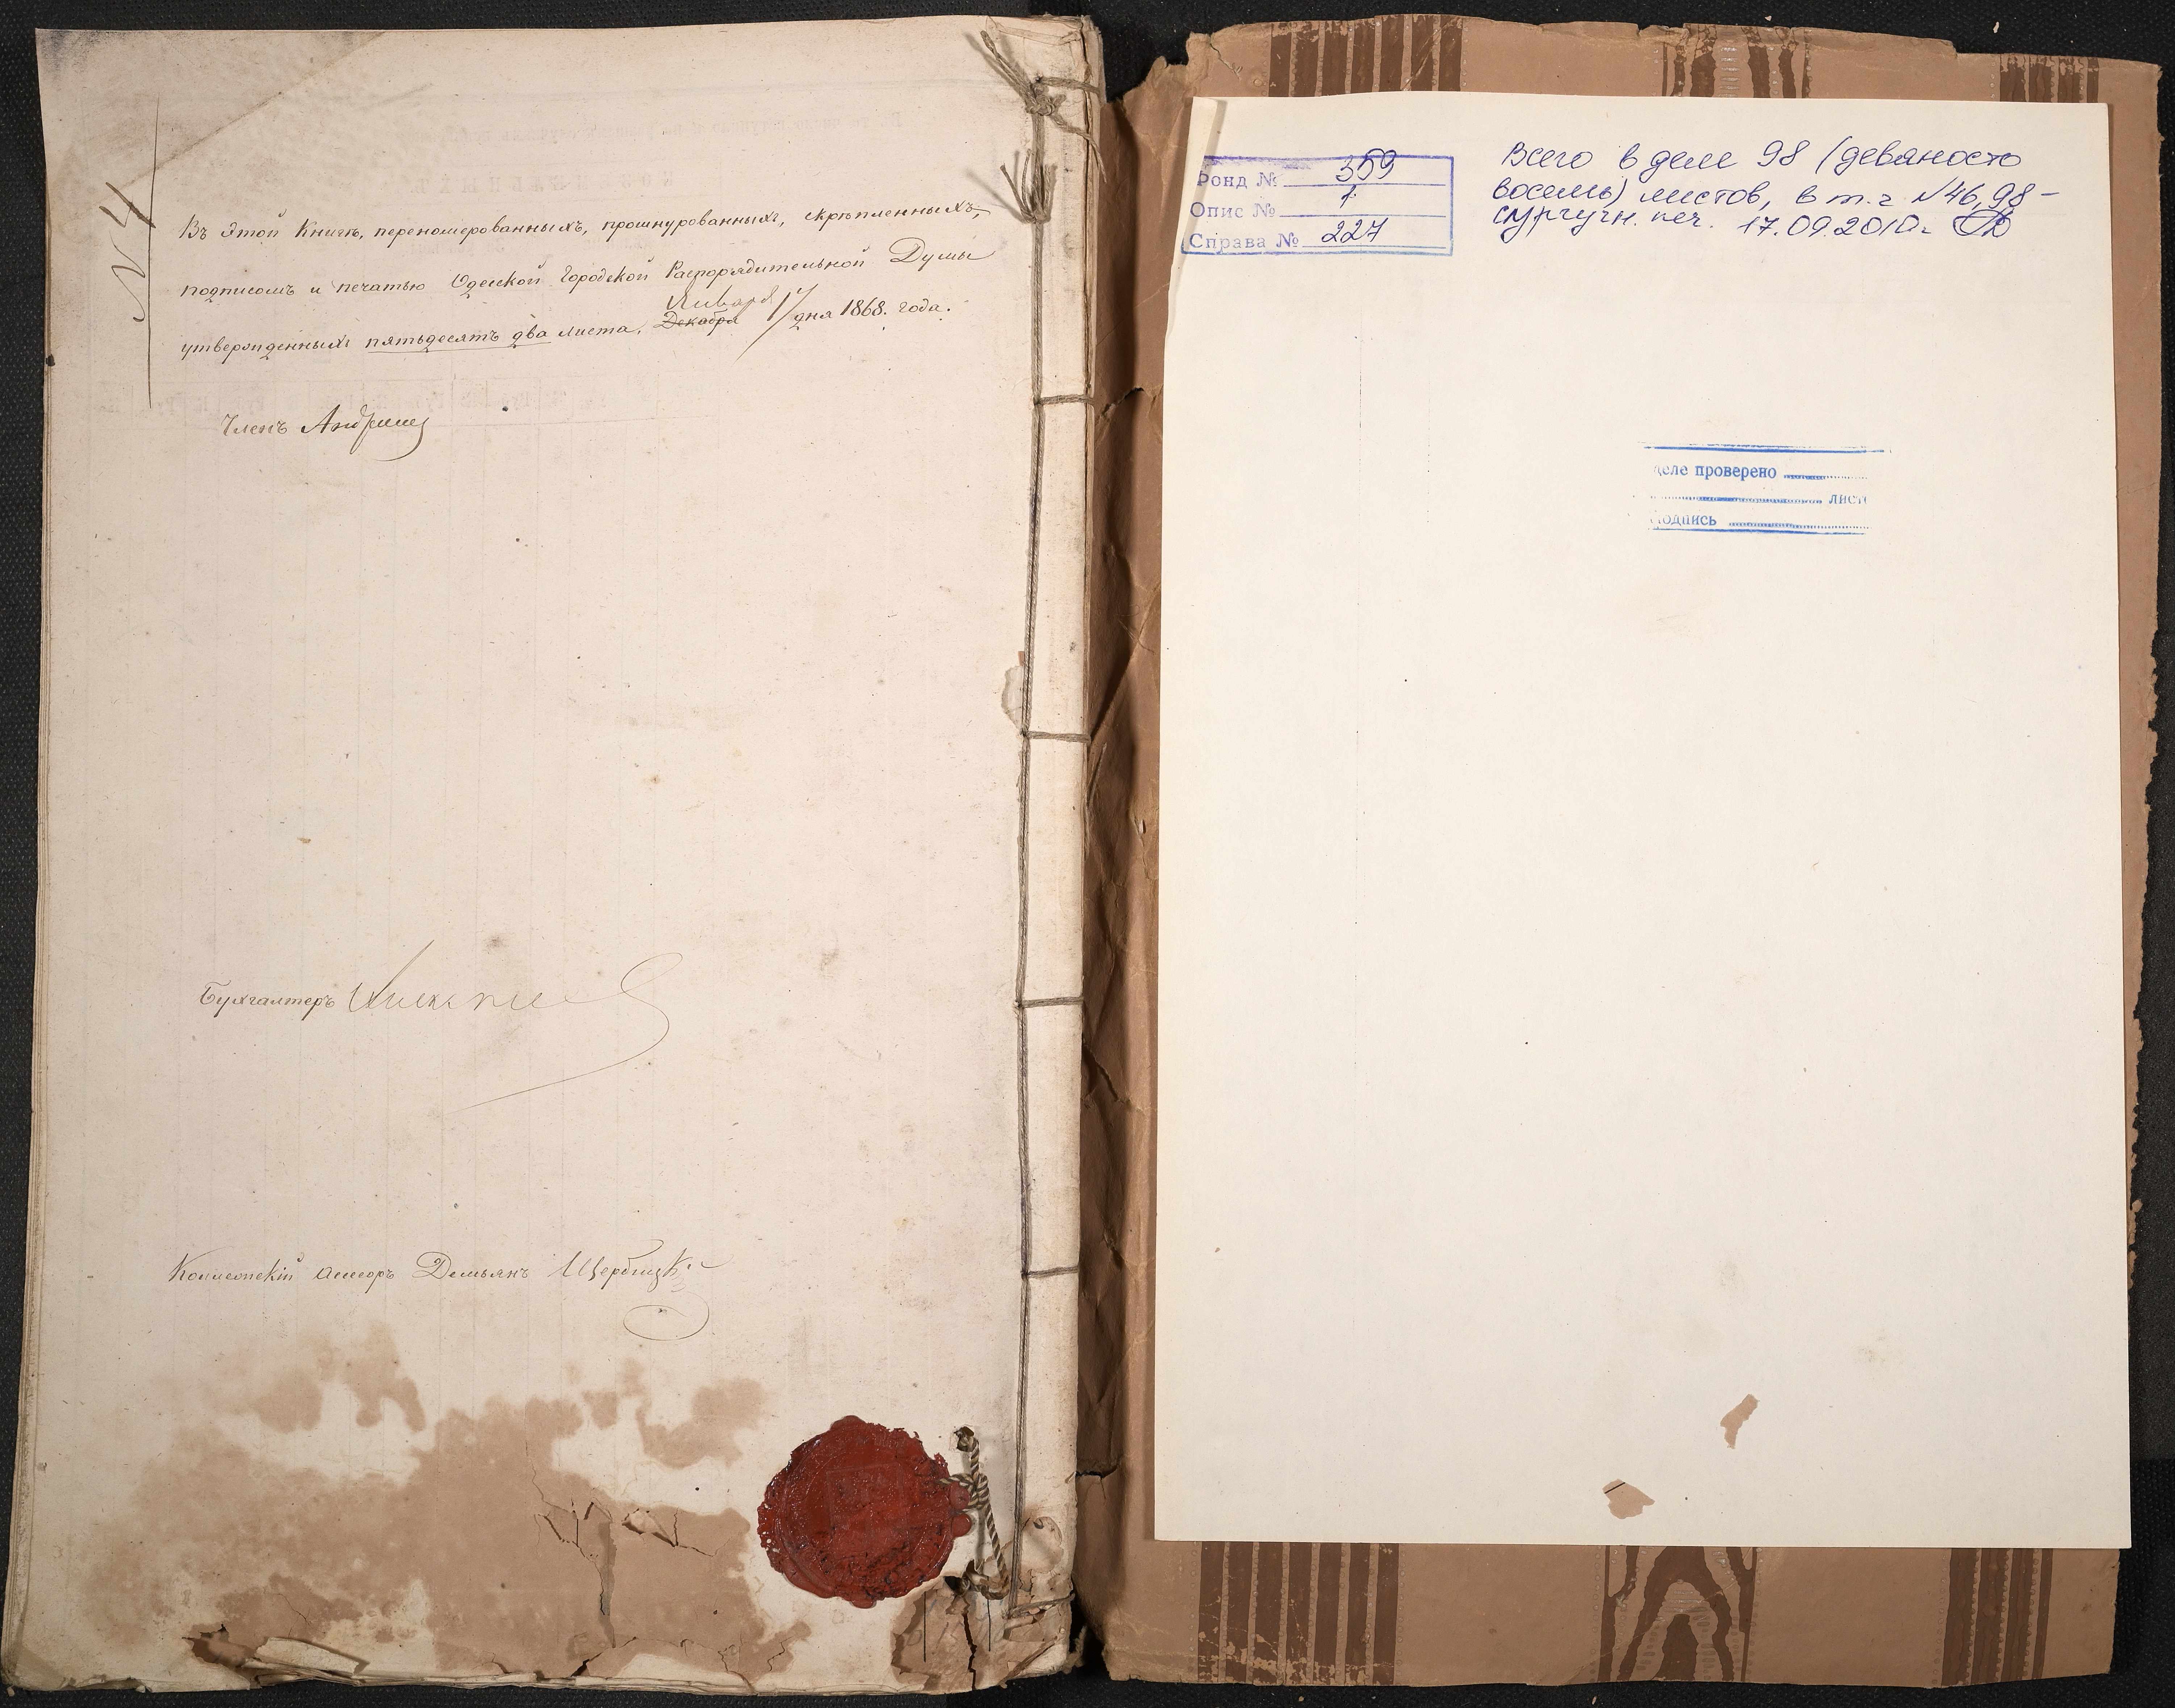 № 4
Въ этой Книгѣ, переномерованныхъ, прошнурованныхъ, скрѣпленныхъ,
подписомъ и печатью Одесской Городской Распорядительной Думы
утвержденныхъ пятьдесятъ два листа. Декабря Января 17 дня 1868. года.
Членъ
Бухгалтеръ
Коллежскій Ассесоръ Демьянъ Щербицкі
Фонд № 359
Опис № 1
Справа № 227
Всего в деле 98 (девяносто
восемь) листов, в т.ч. №46,98-
сургучн. печ. 17.09.2010г.
деле проверено
лист
подпись